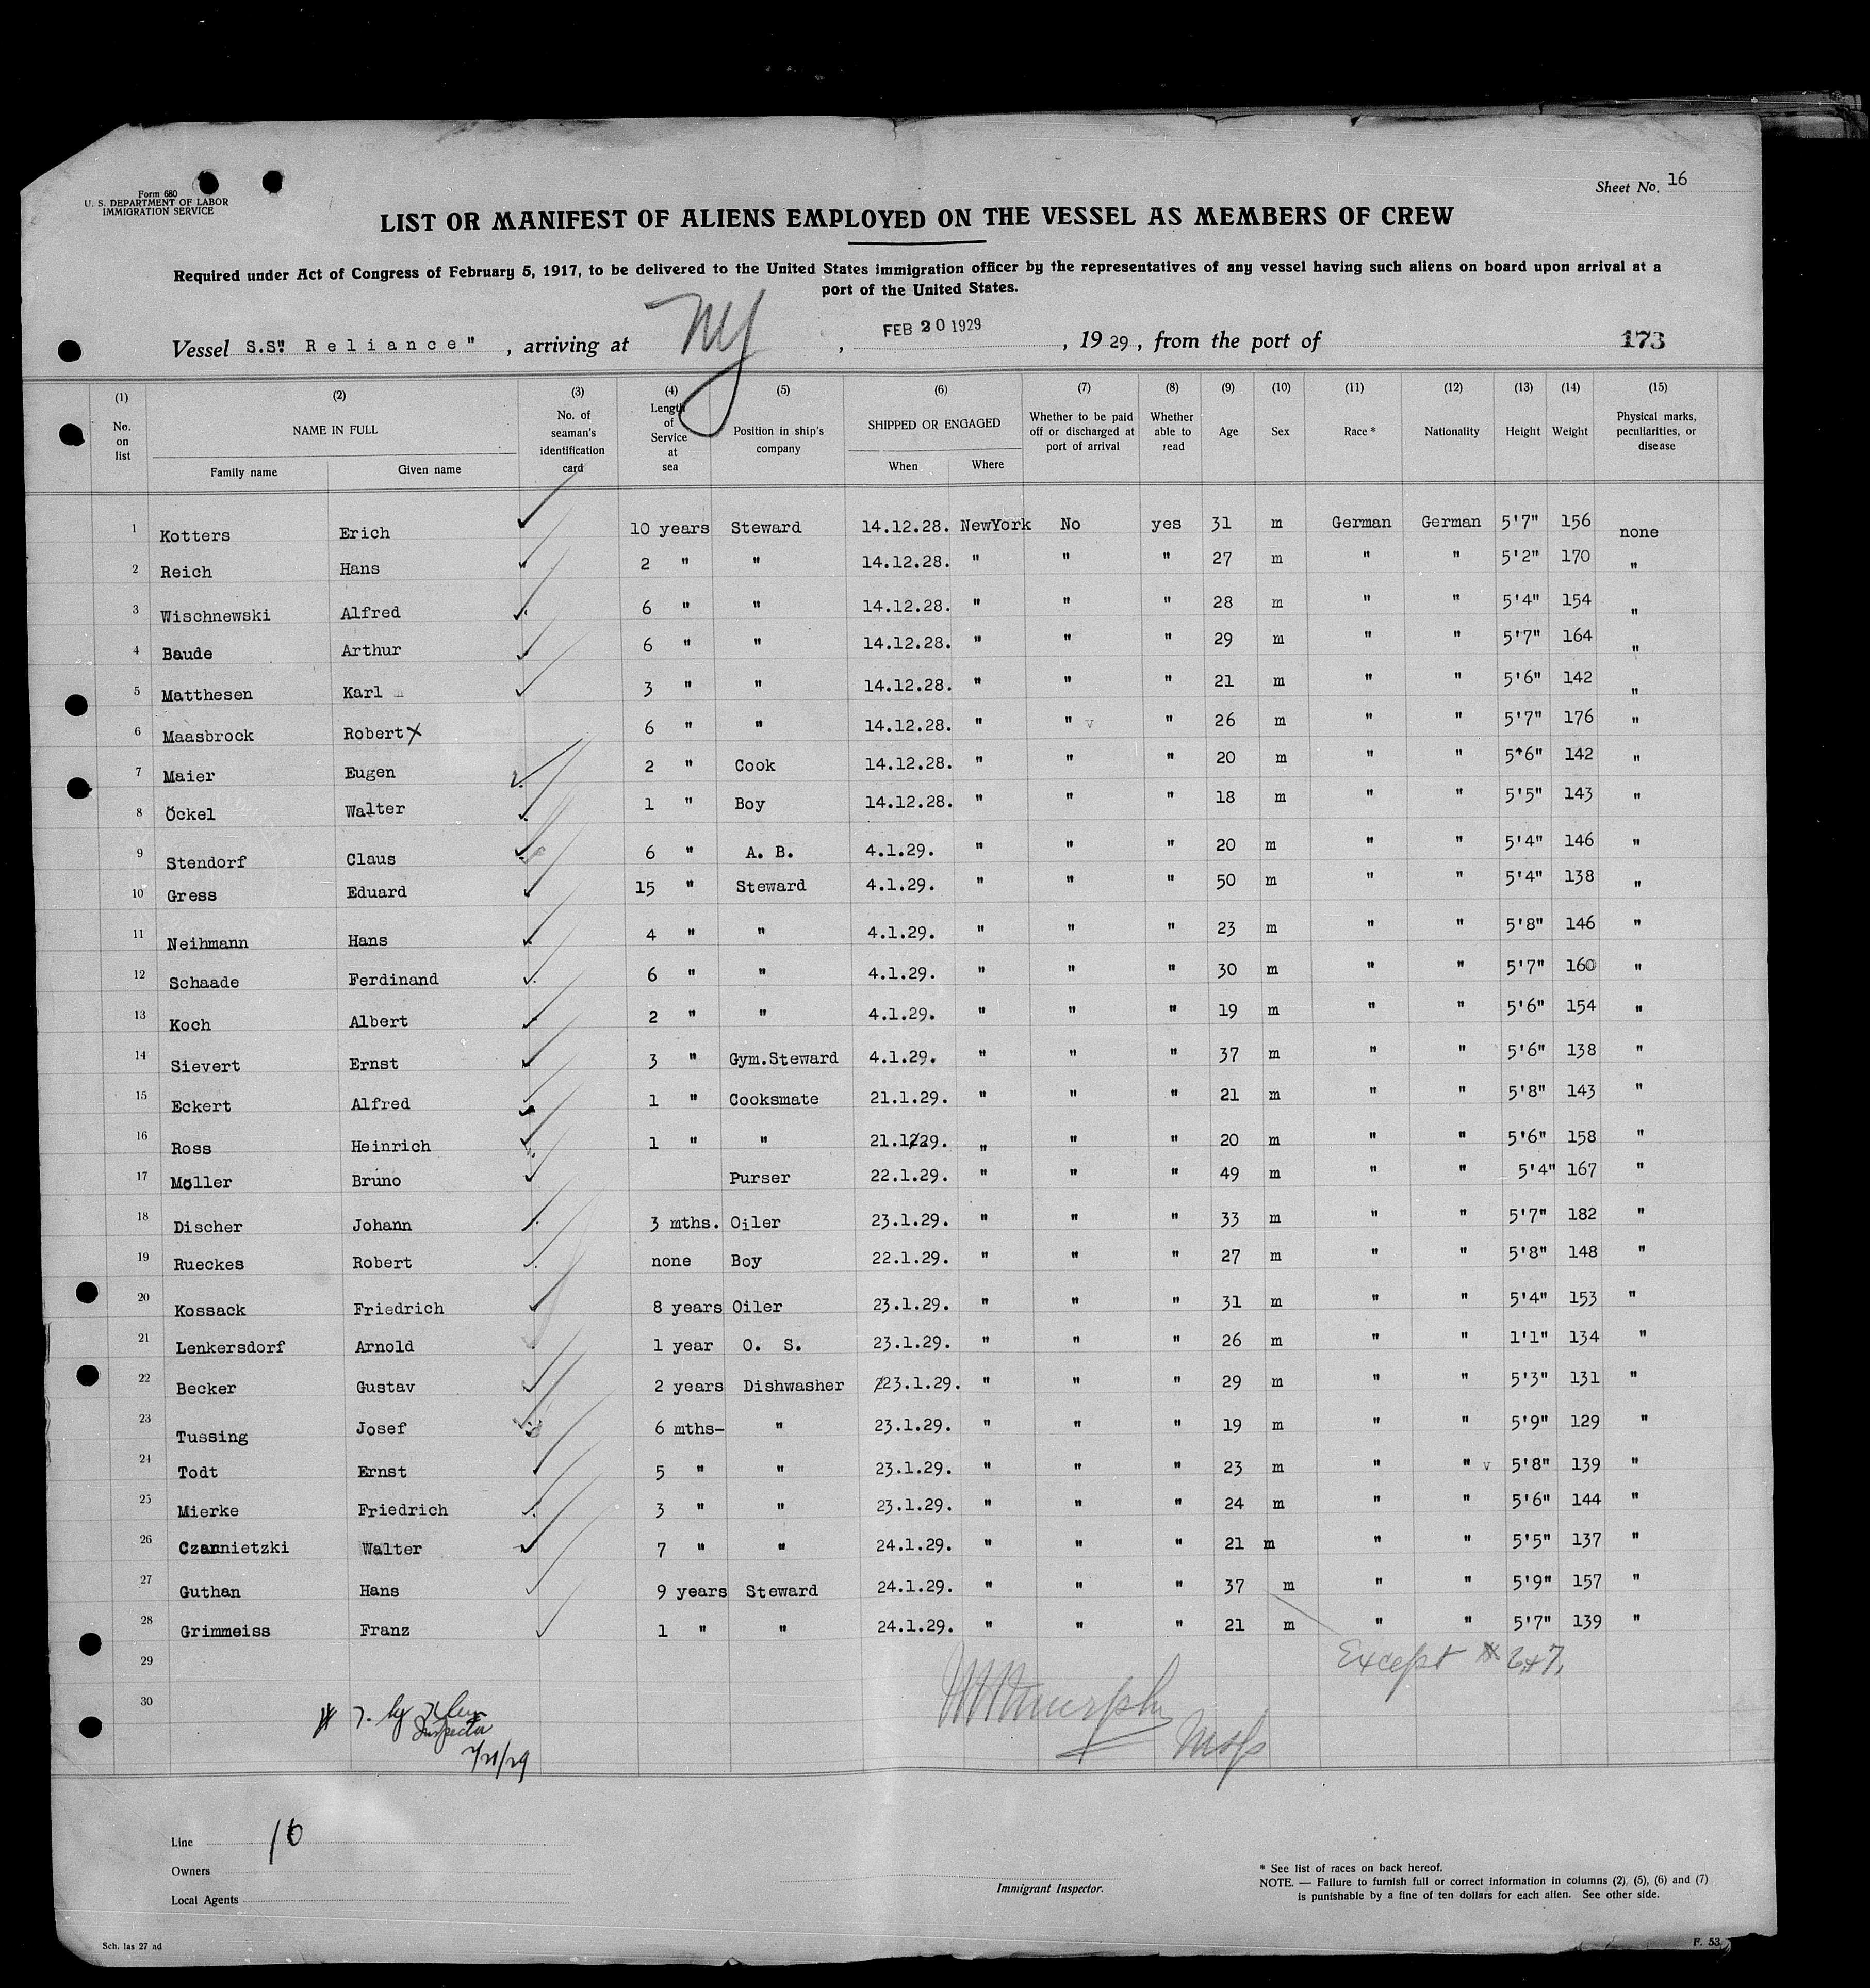 Form 680
U. S. DEPARTMENT OF LABOR
IMMIGRATION SERVICE
Sheet No. 16
LIST OR MANIFEST OF ALIENS EMPLOYED ON THE VESSEL AS MEMBERS OF CREW
Required under Act of Congress of February 5, 1917, to be delivered to the United States immigration officer by the representatives of any vessel having such aliens on board upon arrival at a
port of the United States.
Vessel S.S. "Reliance", arriving at NY, FEB 20 1929, 1929, from the port of 173
(1) No. on list (2) NAME IN FULL Family name Given name (3) No. of seaman's identification card (4) Length of Service at sea (5) Position in ship's company (6) SHIPPED OR ENGAGED When Where (7) Whether to be paid off or discharged at port of arrival (8) Whether able to read (9) Age (10) Sex (11) Race* (12) Nationality (13) Height (14) Weight (15) Physical marks, peculiarities, or disease
1 Kotters Erich 10 years Steward 14.12.28. NewYork No yes 31 m German German 5'7" 156 none
2 Reich Hans 2 " " 14.12.28. " " " 27 m " " 5'2" 170 "
3 Wischnewski Alfred 6 " " 14.12.28. " " " 28 m " " 5'4" 154 "
4 Baude Arthur 6 " " 14.12.28. " " " 29 m " " 5'7" 164 "
5 Matthesen Karl 3 " " 14.12.28. " " " 21 m " " 5'6" 142 "
6 Maasbrock Robert X 6 " " 14.12.28. " " v " 26 m " " 5'7" 176 "
7 Maier Eugen 2 " Cook 14.12.28. " " " 20 m " " 5'6" 142 "
8 Öckel Walter 1 " Boy 14.12.28. " " " 18 m " " 5'5" 143 "
9 Stendorf Claus 6 " A. B. 4.1.29. " " " 20 m " " 5'4" 146 "
10 Gress Eduard 15 " Steward 4.1.29. " " " 50 m " " 5'4" 138 "
11 Neihmann Hans 4 " " 4.1.29. " " " 23 m " " 5'8" 146 "
12 Schaade Ferdinand 6 " " 4.1.29. " " " 30 m " " 5'7" 160 "
13 Koch Albert 2 " " 4.1.29. " " " 19 m " " 5'6" 154 "
14 Sievert Ernst 3 " Gym.Steward 4.1.29. " " " 37 m " " 5'6" 138 "
15 Eckert Alfred 1 " Cooksmate 21.1.29. " " " 21 m " " 5'8" 143 "
16 Ross Heinrich 1 " " 21.1.29. " " " 20 m " " 5'6" 158 "
17 Möller Bruno Purser 22.1.29. " " " 49 m " " 5'4" 167 "
18 Discher Johann 3 mths. Oiler 23.1.29. " " " 33 m " " 5'7" 182 "
19 Rueckes Robert none Boy 22.1.29. " " " 27 m " " 5'8" 148 "
20 Kossack Friedrich 8 years Oiler 23.1.29. " " " 31 m " " 5'4" 153 "
21 Lenkersdorf Arnold 1 year O. S. 23.1.29. " " " 26 m " " 1'1" 134 "
22 Becker Gustav 2 years Dishwasher 23.1.29. " " " 29 m " " 5'3" 131 "
23 Tussing Josef 6 mths- " 23.1.29. " " " 19 m " " 5'9" 129 "
24 Todt Ernst 5 " " 23.1.29. " " " 23 m " " v 5'8" 139 "
25 Mierke Friedrich 3 " " 23.1.29. " " " 24 m " " 5'6" 144 "
26 Czannietzki Walter 7 " " 24.1.29. " " " 21 m " " 5'5" 137 "
27 Guthan Hans 9 years Steward 24.1.29. " " " 37 m " " 5'9" 157 "
28 Grimmeiss Franz 1 " " 24.1.29. " " " 21 m " " 5'7" 139 "
29 Except # 6+7.
30
# 7. by
Inspector
2/21/29
Murphy
Line 16
Owners
Local Agents
Immigrant Inspector.
* See list of races on back hereof.
NOTE. — Failure to furnish full or correct information in columns (2), (5), (6) and (7)
is punishable by a fine of ten dollars for each alien. See other side.
Sch. las 27 ad
F. 53